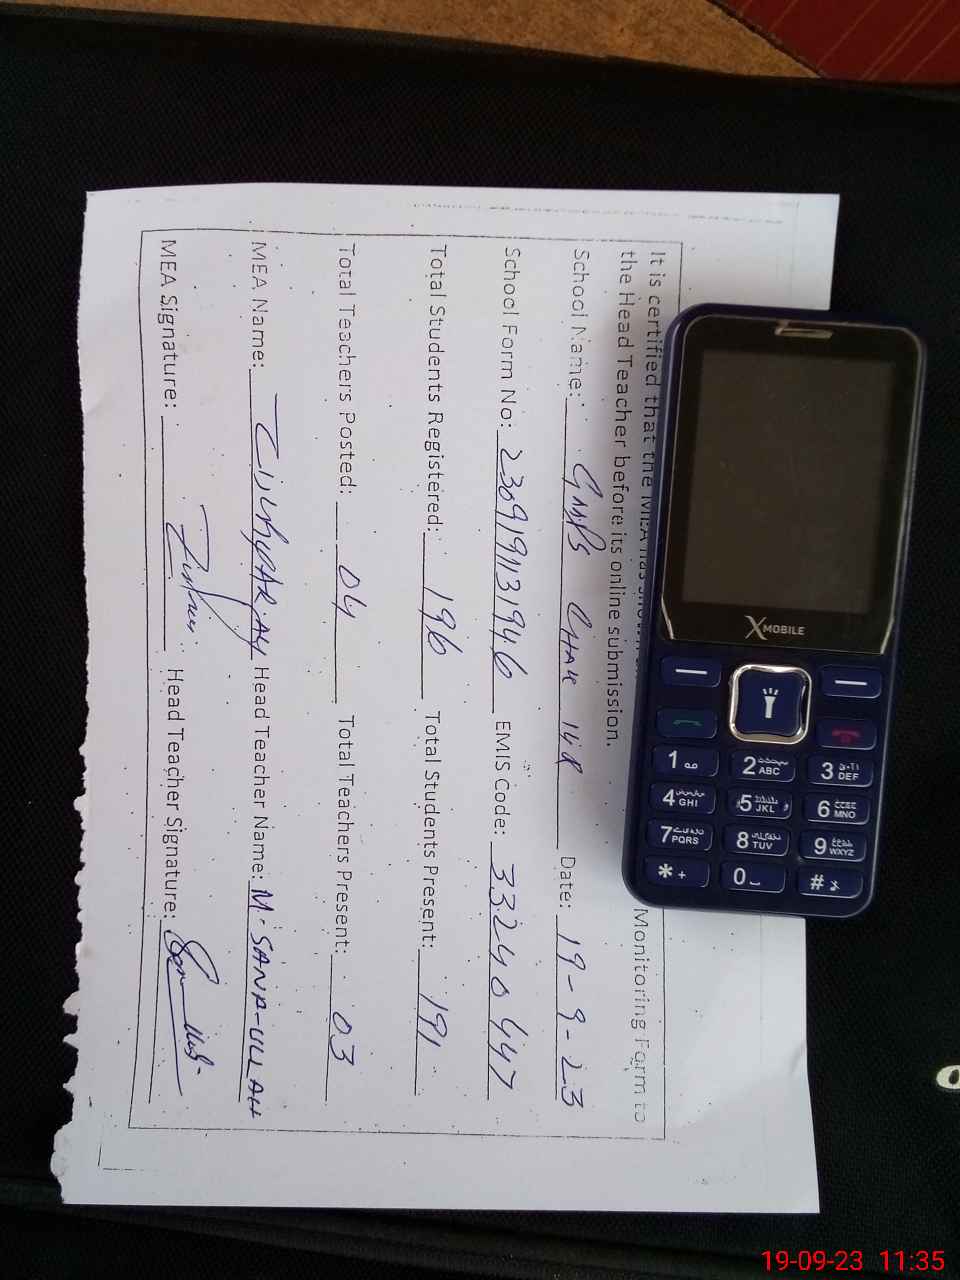 It is certified that the MEA has shown Monitoring Form to
the Head Teacher before its online submission.
School Name: GMPS CHAK 14R Date: 19-9-23
School Form No: 230919131946 EMIS Code: 33240447
Total Students Registered: 196 Total Students Present: 191
Total Teachers Posted: 04 Total Teachers Present: 03
MEA Name: Head Teacher Name: M. SANA-ULLAH
MEA Signature: Head Teacher Signature:
X MOBILE
1 2 ABC 3 DEF
4 GHI 5 JKL 6 MNO
7 PQRS 8 TUV 9 WXYZ
* + 0 #
19-09-23 11:35